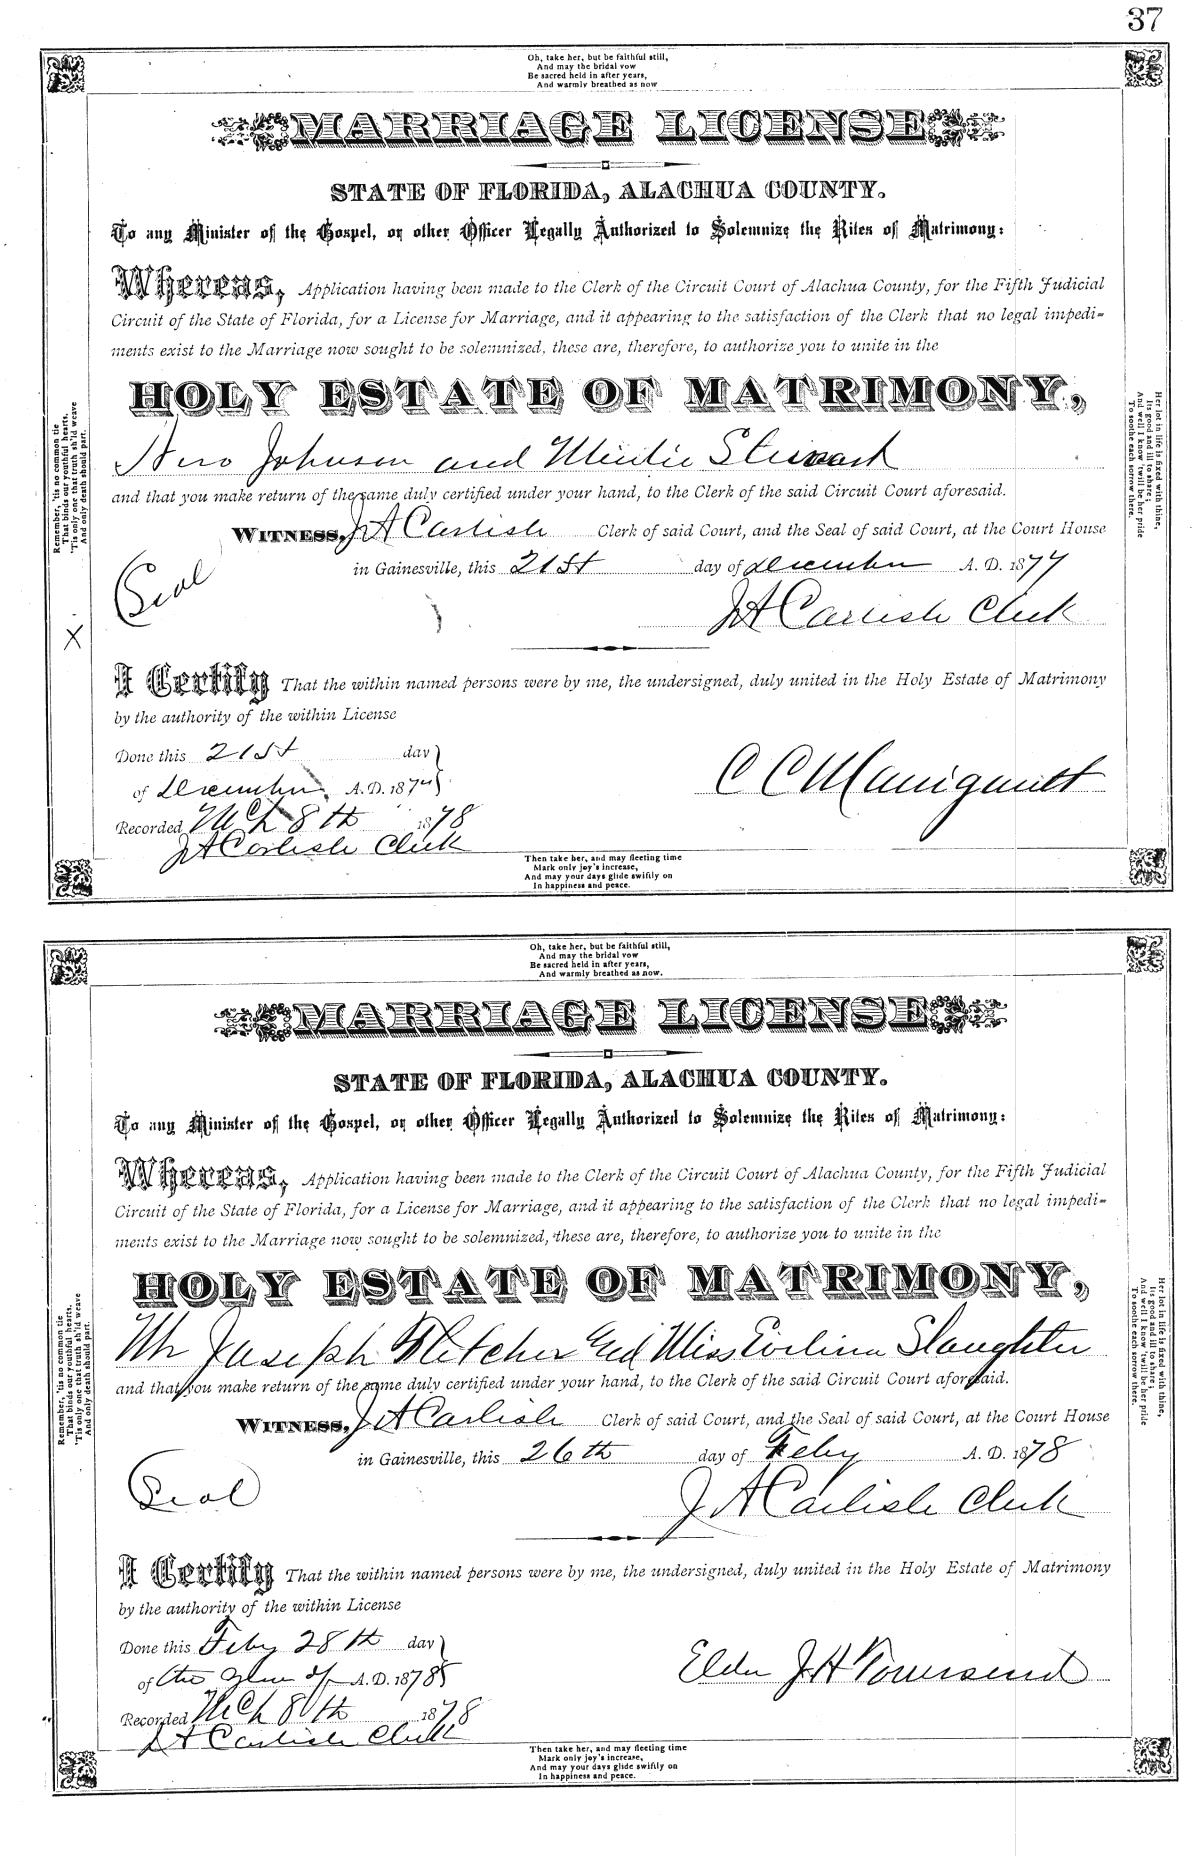 37
Oh, take her, but be faithful still,
And may the bridal vow
Be sacred held in after years,
And warmly breathed as now
MARRIAGE LICENSE
STATE OF FLORIDA, ALACHUA COUNTY.
To any Minister of the Gospel, or other Officer Legally Authorized to Solemnize the Rites of Matrimony:
Whereas, Application having been made to the Clerk of the Circuit Court of Alachua County, for the Fifth Judicial
Circuit of the State of Florida, for a License for Marriage, and it appearing to the satisfaction of the Clerk that no legal impedi-
ments exist to the Marriage now sought to be solemnized, these are, therefore, to authorize you to unite in the
HOLY ESTATE OF MATRIMONY,
Johnson and Steward
and that you make return of the same duly certified under your hand, to the Clerk of the said Circuit Court aforesaid.
WITNESS, J A Carlisle Clerk of said Court, and the Seal of said Court, at the Court House
in Gainesville, this 21st day of December A. D. 1877
(Seal
J A Carlisle Clerk
I Certify That the within named persons were by me, the undersigned, duly united in the Holy Estate of Matrimony
by the authority of the within License
Done this 21st day
of December A. D. 187
C C Manigault
Recorded Mch 8th 1878
J A Carlisle Clerk
Then take her, and may fleeting time
Mark only joy's increase,
And may your days glide swiftly on
In happiness and peace.
Remember, 'tis no common tie
That binds our youthful hearts,
'Tis only one that truth sh'ld weave
And only death should part.
X
Her lot in life is fixed with thine,
Its good and ill to share;
And well I know 'twill be her pride
To soothe each sorrow there.
Oh, take her, but be faithful still,
And may the bridal vow
Be sacred held in after years,
And warmly breathed as now.
MARRIAGE LICENSE
STATE OF FLORIDA, ALACHUA COUNTY.
To any Minister of the Gospel, or other Officer Legally Authorized to Solemnize the Rites of Matrimony:
Whereas, Application having been made to the Clerk of the Circuit Court of Alachua County, for the Fifth Judicial
Circuit of the State of Florida, for a License for Marriage, and it appearing to the satisfaction of the Clerk that no legal impedi-
ments exist to the Marriage now sought to be solemnized, these are, therefore, to authorize you to unite in the
HOLY ESTATE OF MATRIMONY,
Mr Joseph Fletcher and Miss Evelina Slaughter
and that you make return of the same duly certified under your hand, to the Clerk of the said Circuit Court aforesaid.
WITNESS, J A Carlisle Clerk of said Court, and the Seal of said Court, at the Court House
in Gainesville, this 26th day of Feby A. D. 1878
(Seal)
J A Carlisle Clerk
I Certify That the within named persons were by me, the undersigned, duly united in the Holy Estate of Matrimony
by the authority of the within License
Done this Feby 28th day
of the year of A. D. 1878
Elder J H Townsend
Recorded Mch 8th 1878
J A Carlisle Clerk
Then take her, and may fleeting time
Mark only joy's increase,
And may your days glide swiftly on
In happiness and peace.
Remember, 'tis no common tie
That binds our youthful hearts,
'Tis only one that truth sh'ld weave
And only death should part.
Her lot in life is fixed with thine,
Its good and ill to share;
And well I know 'twill be her pride
To soothe each sorrow there.